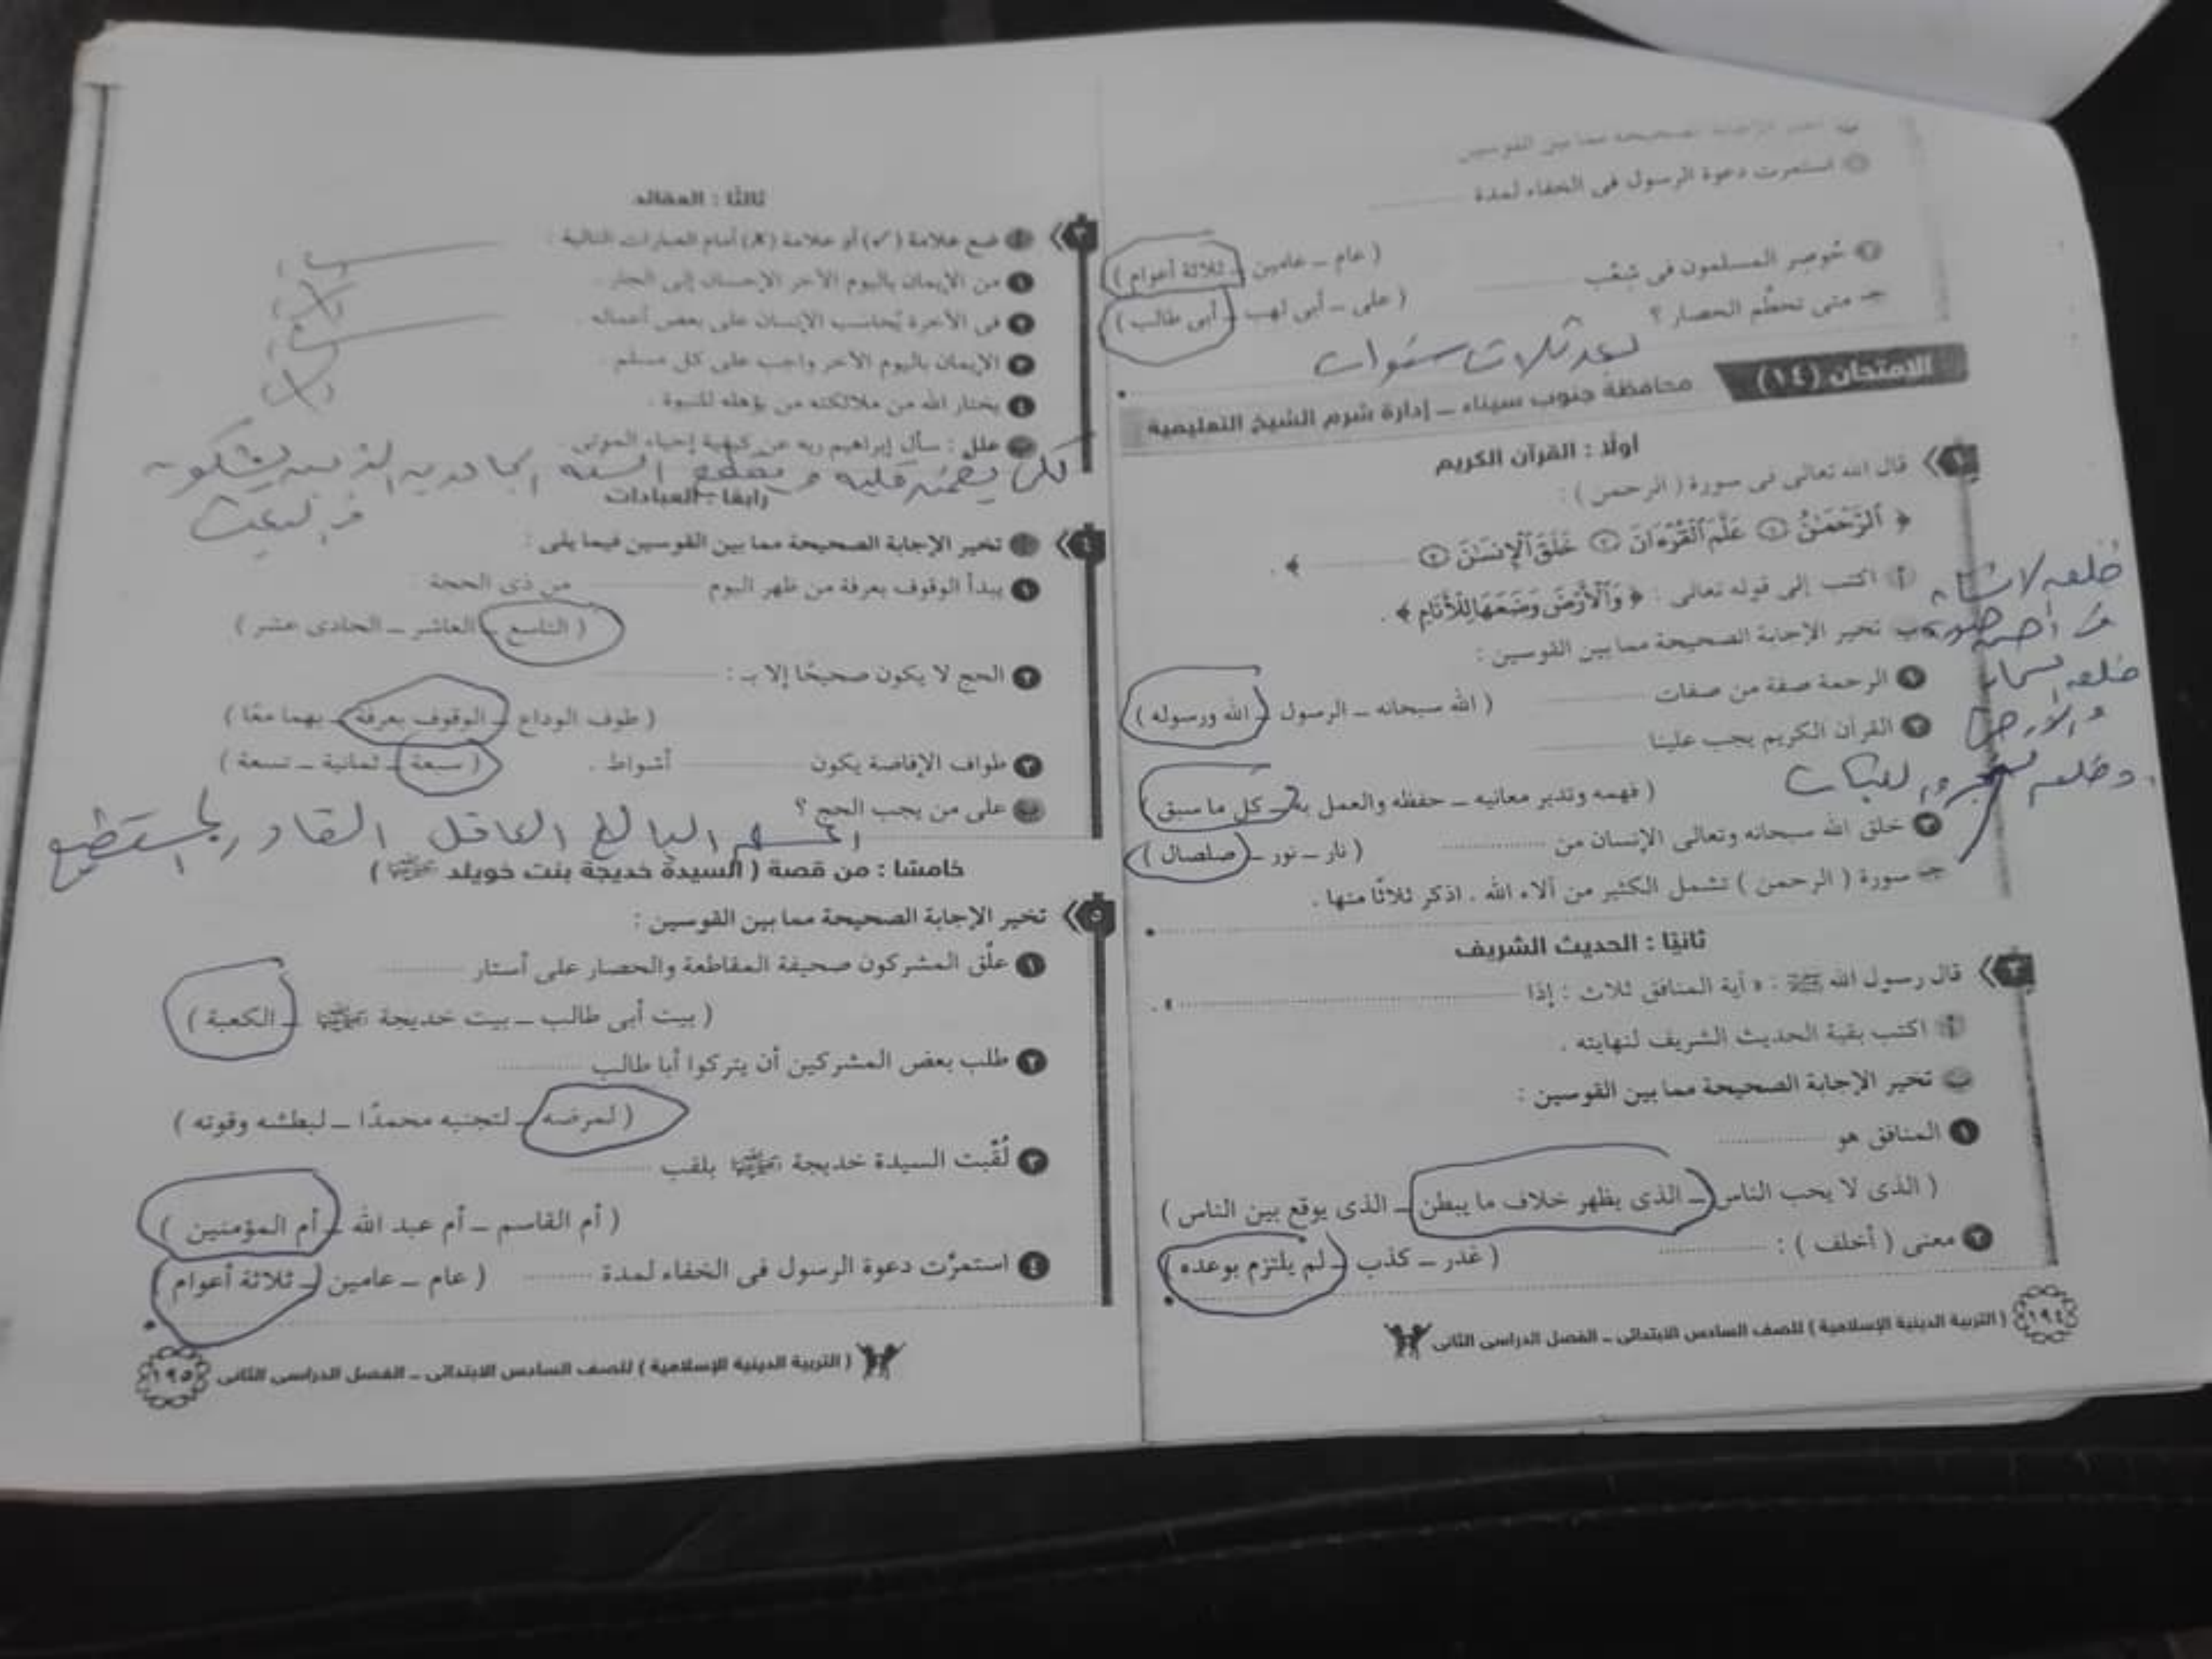 تخير الإجابة الصحيحة مما بين القوسين
استمرت دعوة الرسول فى الخفاء لمدة ............
( عام ــ عامين ــ ثلاثة أعوام )
٢ حُوصر المسلمون فى شِعْب ............
( على ــ أبى لهب ــ أبى طالب )
جـ متى تحطَّم الحصار ؟
بعد ثلاث سنوات
الامتحان (١٤)
محافظة جنوب سيناء ــ إدارة شرم الشيخ التعليمية
أولًا : القرآن الكريم
١ قال الله تعالى فى سورة ( الرحمن ) :
﴿ ٱلرَّحْمَٰنُ ١ عَلَّمَ ٱلْقُرْءَانَ ٢ خَلَقَ ٱلْإِنسَٰنَ ٣ ............ ﴾ .
أ اكتب إلى قوله تعالى : ﴿ وَٱلْأَرْضَ وَضَعَهَا لِلْأَنَامِ ﴾ .
ب تخير الإجابة الصحيحة مما بين القوسين :
١ الرحمة صفة من صفات ............
( الله سبحانه ــ الرسول ــ الله ورسوله )
٢ القرآن الكريم يجب علينا ............
( فهمه وتدبر معانيه ــ حفظه والعمل به ــ كل ما سبق )
٣ خلق الله سبحانه وتعالى الإنسان من ............
( نار ــ نور ــ صلصال )
جـ سورة ( الرحمن ) تشمل الكثير من آلاء الله . اذكر ثلاثًا منها .
والأرض
ثانيًا : الحديث الشريف
٢ قال رسول الله ﷺ : « آية المنافق ثلاث : إذا ............ » .
أ اكتب بقية الحديث الشريف لنهايته .
ب تخير الإجابة الصحيحة مما بين القوسين :
١ المنافق هو ............
( الذى لا يحب الناس ــ الذى يظهر خلاف ما يبطن ــ الذى يوقع بين الناس )
٢ معنى ( أخلف ) : ............
( غدر ــ كذب ــ لم يلتزم بوعده )
١٩٤ ( التربية الدينية الإسلامية ) للصف السادس الابتدائى ــ الفصل الدراسى الثانى
ثالثًا : العقائد
٣ أ ضع علامة (✓) أو علامة (✗) أمام العبارات التالية :
١ من الإيمان باليوم الآخر الإحسان إلى الجار .
٢ فى الآخرة يُحاسب الإنسان على بعض أعماله .
٣ الإيمان باليوم الآخر واجب على كل مسلم .
٤ يختار الله من ملائكته من يؤهله للنبوة .
ب علل : سأل إبراهيم ربه عن كيفية إحياء الموتى .
رابعًا : العبادات
٤ أ تخير الإجابة الصحيحة مما بين القوسين فيما يلى :
١ يبدأ الوقوف بعرفة من ظهر اليوم ............ من ذى الحجة .
( التاسع ــ العاشر ــ الحادى عشر )
٢ الحج لا يكون صحيحًا إلا بـ : ............
( طوف الوداع ــ الوقوف بعرفة ــ بهما معًا )
٣ طواف الإفاضة يكون ............ أشواط .
( سبعة ــ ثمانية ــ تسعة )
ب على من يجب الحج ؟
البالغ العاقل القادر
خامسًا : من قصة ( السيدة خديجة بنت خويلد )
٥ تخير الإجابة الصحيحة مما بين القوسين :
١ علَّق المشركون صحيفة المقاطعة والحصار على أستار ............
( بيت أبى طالب ــ بيت خديجة ــ الكعبة )
٢ طلب بعض المشركين أن يتركوا أبا طالب ............
( لمرضه ــ لتجنبه محمدًا ــ لبطشه وقوته )
٣ لُقِّبت السيدة خديجة بلقب ............
( أم القاسم ــ أم عبد الله ــ أم المؤمنين )
٤ استمرَّت دعوة الرسول فى الخفاء لمدة ............ ( عام ــ عامين ــ ثلاثة أعوام )
( التربية الدينية الإسلامية ) للصف السادس الابتدائى ــ الفصل الدراسى الثانى ١٩٥